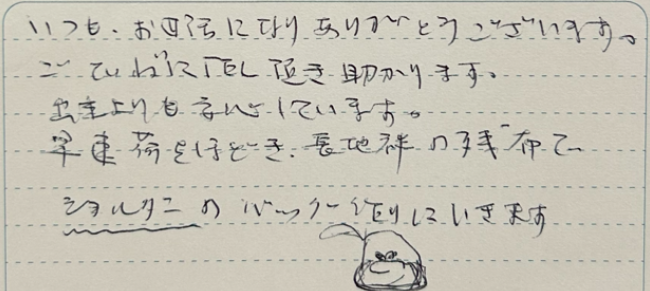 いつも、お世話になりありがとうございます。
ごていねいにTEL頂き助かります。
しています。
早速荷をほどき、長地 の残布で
ショルダーのバッグ作りにいきます